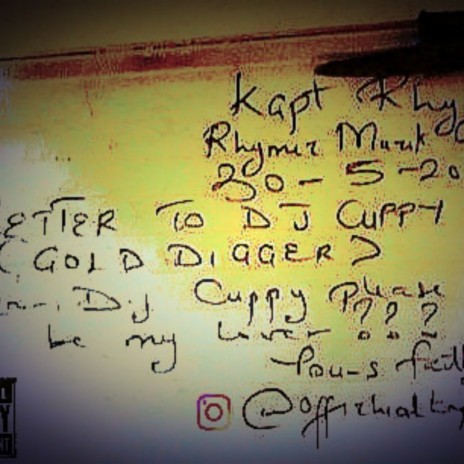 Kapt Rhy
Rhymer Musik
30-5-20
ETTER TO DJ CUPPY
(GOLD DIGGER)
D.j Cuppy please
be my lover ???
You-s
@official